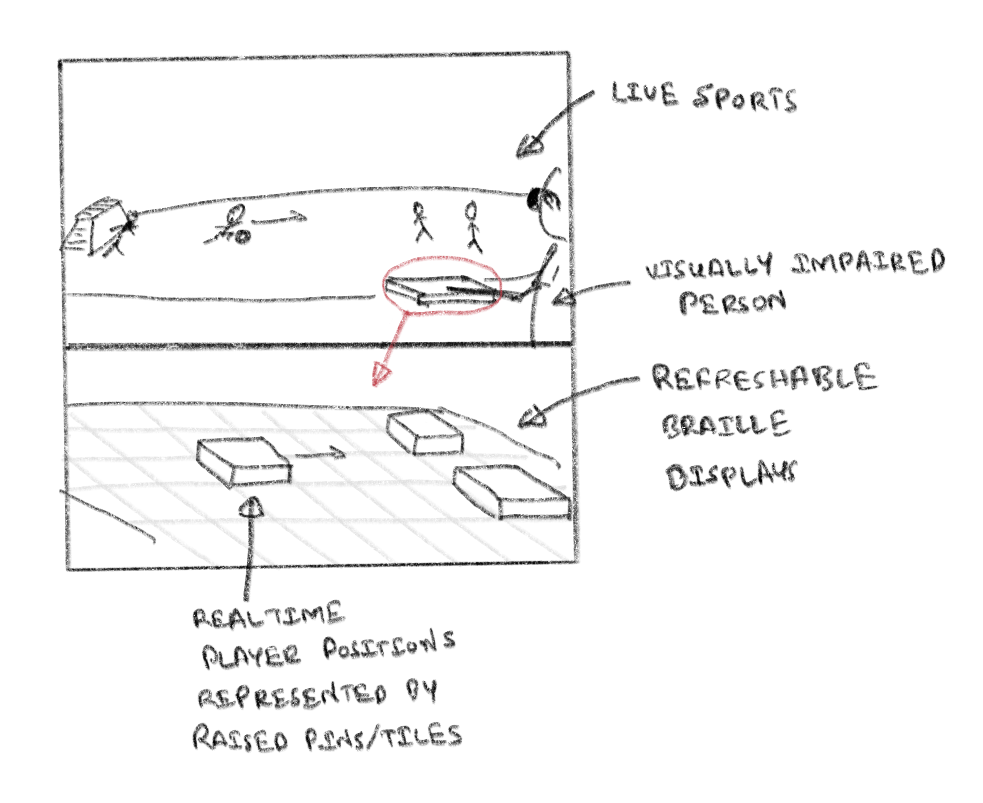 LIVE SPORTS
VISUALLY IMPAIRED
PERSON
REFRESHABLE
BRAILLE
DISPLAYS
REALTIME
PLAYER POSITIONS
REPRESENTED BY
RAISED PINS/TILES